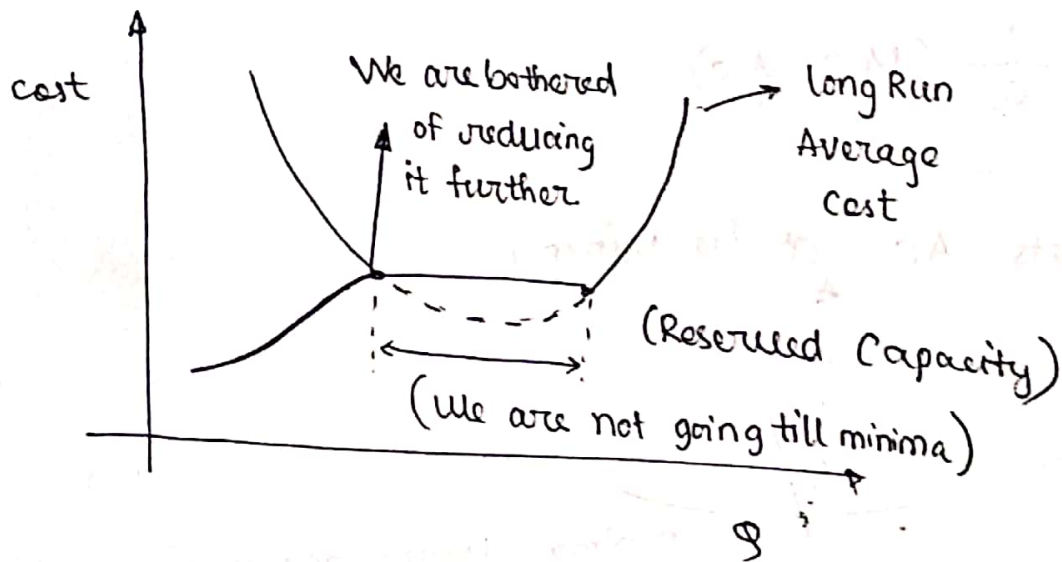 cost
We are bothered
of reducing
it further
long Run
Average
Cost
(Reserved Capacity)
(We are not going till minima)